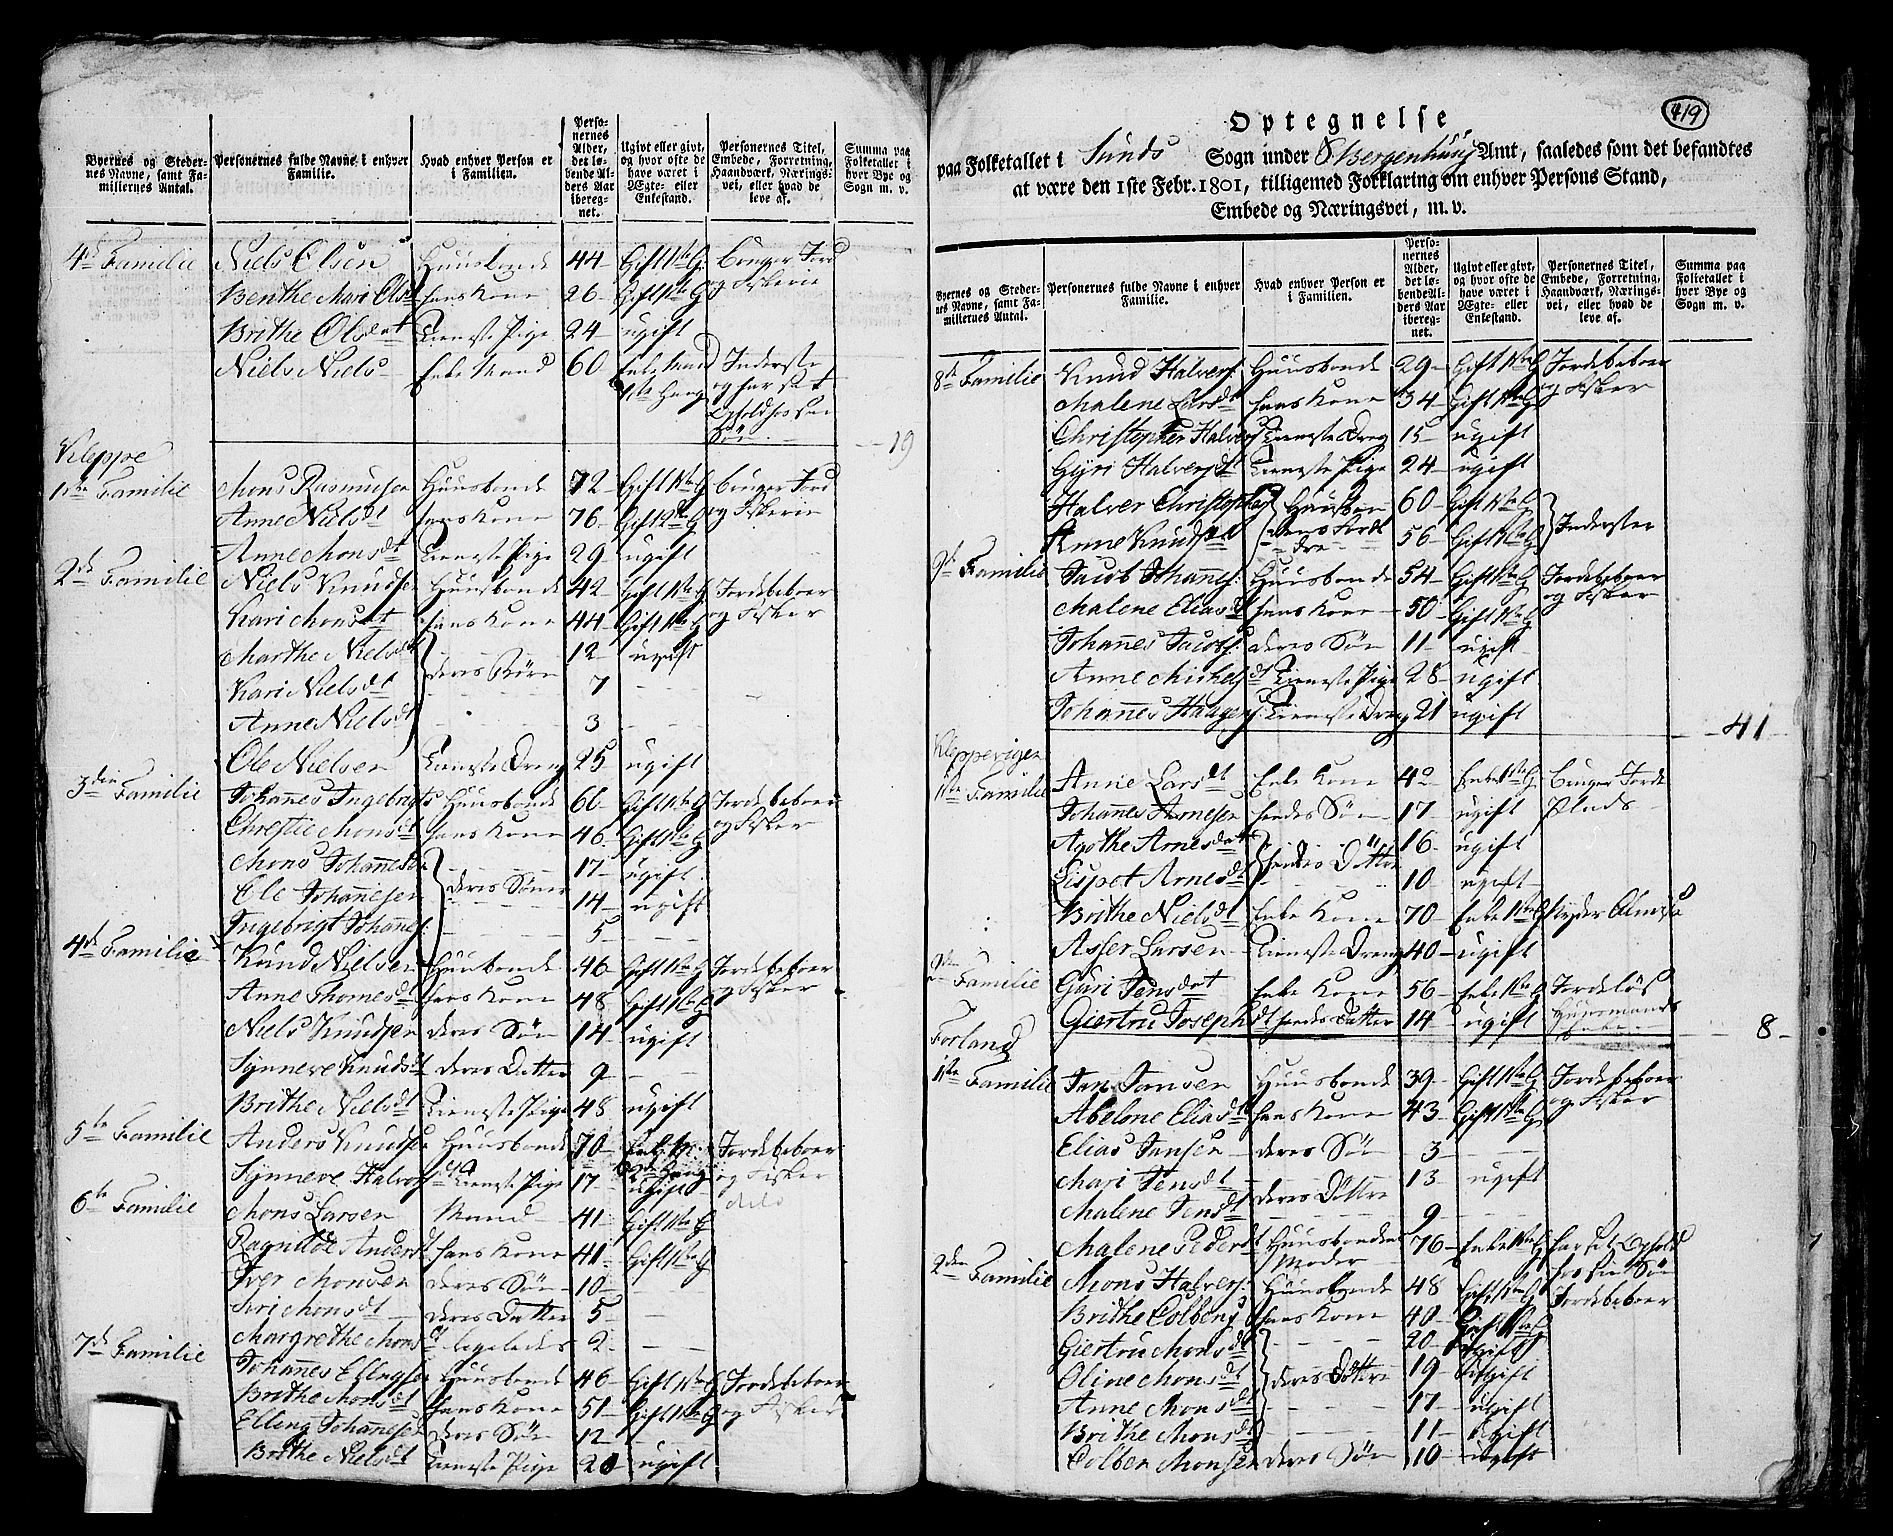 Byernes og Stedernes Navne, samt Familiernes Antal.
Personernes fulde Navne i enhver Familie.
Hvad enhver Person er i Familien.
Personernes Alder, det løbende Alders Aar iberegnet.
Ugivt eller givt, og hvor ofte de have været i Ægte- eller Enkestand.
Personernes Titel, Embede, Forretning, Haandværk, Næringsvei, eller hvad de leve af.
Summa paa Folketallet i hver Bye og Sogn m. v.
4de Familie Niels Olsen Huusbonde 44 Gift 1ste G bruger Jord
Benthe Mari Olsdt hans Kone 26 Gift 1ste G og Fiskerie
Brithe Olsdat Tieneste Pige 24 ugift
Niels Niels Enke Mand 60 Enke Mand Inderste
1ste Gang og har sit
Ophold hos sin
Søn 19
Kleppe
1ste Familie Mons Rasmusen Huusbonde 72 Gift 1ste G bruger Jord
Anne Nielsdt hans Kone 76 Gift 2de G og Fiskerie
Anne Monsdt Tieneste Pige 29 ugift
2de Familie Niels Knudsen Huusbonde 42 Gift 1ste G Jordebeboer
Kari Monsdt hans Kone 44 Gift 1ste G og Fisker
Marthe Nielsdt 12 ugift
Kari Nielsdt deres Børn 7
Anne Nielsdt 3
Ole Nielsen Tieneste Dreng 25 ugift
3den Familie Johannes Ingebrigts Huusbonde 66 Gift 1ste G Jordebeboer
Chrestie Monsdt hans Kone 46 Gift 1ste G og Fisker
Mons Johannesen 17 ugift
Ole Johannesen deres Sønner 14 ugift
Ingebrigt Johannes 5
4de Familie Knud Nielsen Huusbonde 46 Gift 1ste G Jordebeboer
Anne Thomesdt hans Kone 48 Gift 1ste G og Fisker
Niels Knudsen deres Søn 14 ugift
Synneve Knudsdt deres Datter 9
Brithe Nielsdt Tieneste Pige 48 ugift
5te Familie Anders Knudsen Huusbonde 70 Jordebeboer
Synneve Halvorsdt Tieneste Pige 17 ugift og Fisker
6te Familie Mons Larsen Mand 41 Gift 1ste G
Ragnilde Andersdt hans Kone 41 Gift 1ste G
Iver Monsen deres Søn 10
Siri Monsdt deres Datter 5
Margrethe Monsdt ligeledes 2
7de Familie Johannes Ellingsen Huusbonde 46 Gift 1ste G Jordebeboer
Brithe Monsdt hans Kone 51 Gift 1ste G og Fisker
Elling Johannesen deres Søn 12
Brithe Nielsdt Tieneste Pige 20 ugift
419
Optegnelse
paa Folketallet i Sunds Sogn under S Bergenhuus Amt, saaledes som det befandtes
at være den 1ste Febr. 1801, tilligemed Forklaring om enhver Persons Stand,
Embede og Næringsvei, m. v.
Byernes og Stedernes Navne, samt Familiernes Antal.
Personernes fulde Navne i enhver Familie.
Hvad enhver Person er i Familien.
Personernes Alder, det løbende Alders Aar iberegnet.
Ugivt eller givt, og hvor ofte de have været i Ægte- eller Enkestand.
Personernes Titel, Embede, Forretning, Haandværk, Næringsvei, eller hvad de leve af.
Summa paa Folketallet i hver Bye og Sogn m. v.
8de Familie Knud Halvers Huusbonde 29 Gift 1ste G Jordebeboer
Malene Larsdt hans Kone 34 Gift 1ste G og Fisker
Christopher Halvers Tieneste Dreng 15 ugift
Gyri Halversdt Tieneste Pige 24 ugift
Halver Christophers Huusbondens 60 Gift 1ste G
Anne Knudsdt Foreldre 56 Gift 1ste G Inderster
9de Familie Jacob Johannes Huusbonde 54 Gift 1ste G Jordebeboer
Malene Eliasdt hans Kone 50 Gift 1ste G og Fisker
Johannes Jacobs deres Søn 11 ugift
Anne Michelsdt Tieneste Pige 28 ugift
Johannes Haagens Tieneste Dreng 21 ugift
41
Kleppevigen
1ste Familie Anne Larsdt Enke Kone 42 Enke 1ste G bruger Jorde
Johannes Arnesen hendes Søn 17 ugift
Agothe Arnesdat 16 ugift
Lispet Arnesdt hendes Døttre 10 ugift
Brithe Nielsdt Enke Kone 70 Enke 1ste G Nyder Almisse
Asser Larsen Tieneste Dreng 40 ugift
2den Familie Guri Jensdat Enke Kone 56 Enke 1ste G Jordeløs
Giertru Josephdt hendes Datter 14 ugift Huusmands
Enke 8
Forland
1ste Familie Jan Jansen Huusbonde 39 Gift 1ste G Jordebeboer
Abelone Eliasdt hans Kone 43 Gift 1ste G og Fisker
Elias Jansen deres Søn 3
Mari Jensdt 13 ugift
Malene Jensdt deres Døttre 9
Malene Pedersdt Huusbondens Moder 76 Enke 1ste G har sit Ophold
hos sin Søn
2den Familie Mons Halvers Huusbonde 48 Gift 1ste G Jordebeboer
Brithe Colbens hans Kone 40 Gift 1ste G
Giertru Monsdt 20 ugift
Oline Monsdt deres Døttre 19 ugift
Anne Monsdt 17 ugift
Brithe Monsdt 11 ugift
Colben Monsen deres Søn 10 ugift